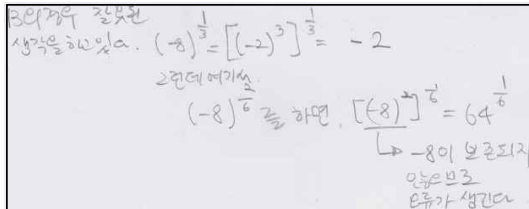 B의 경우 잘못된
생각을 하고 있다. (-8)^{1/3} = [(-2)^3]^{1/3} = -2
그런데 여기서
(-8)^{2/6} 를 하면, [(-8)^2]^{1/6} = 64^{1/6}
↳ -8이 보존되지
않으므로
오류가 생긴다